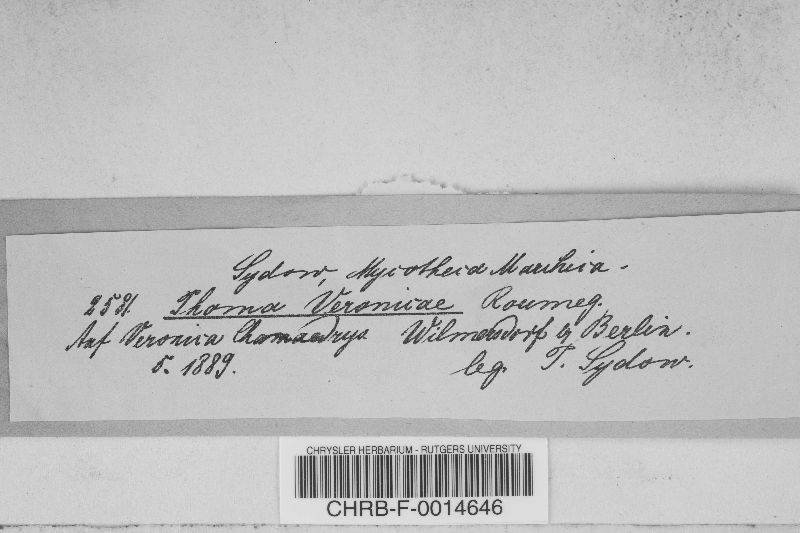 Sydow, Mycotheca Marchica.
2581. Phoma Veronicae Roumeg.
Auf Veronica Chamaedrys Wilmersdorf b/ Berlin.
5. 1889. leg. P. Sydow.
CHRYSLER HERBARIUM - RUTGERS UNIVERSITY
CHRB-F-0014646